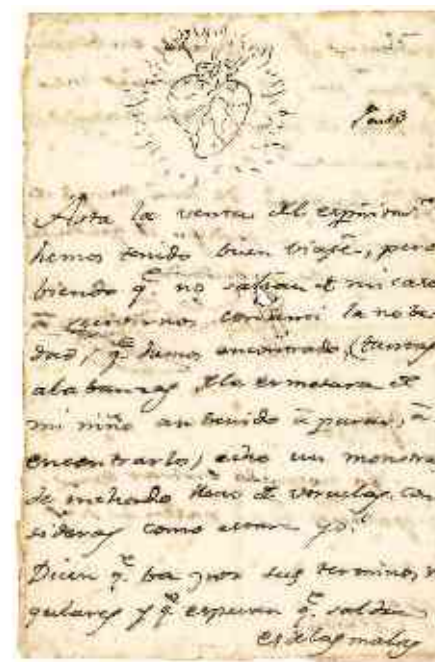 Asta la venta del espiritu
hemos tenido buen viage, pero
biendo qe. no salian el mi caro
a recivirnos, conosi la nobe
dad, qe. hemos encontrado, (tantas
alabanzas de la ermosura de
mi niño an benido a parar, a
encontrarlo) echo un monstro
de inchado lleno de viruelas, con
sideras como estare yo.
Dicen qe. ba por sus terminos, re
gulares y qe. esperan qe. saldra
es de las malas